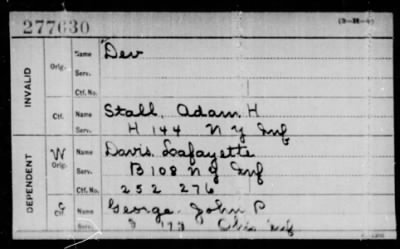 277630
(3-H-)
INVALID
Orig.
Name Dev
Serv.
Ctf. No.
Ctf.
Name Stall, Adam H
Serv. H 144 N Y Inf
DEPENDENT
W
Orig.
Name Davis, Lafayette
Serv. B 108 N Y Inf
Ctf. No. 252 276
C
Ctf.
Name George, John P
Serv. 173 Ohio Inf